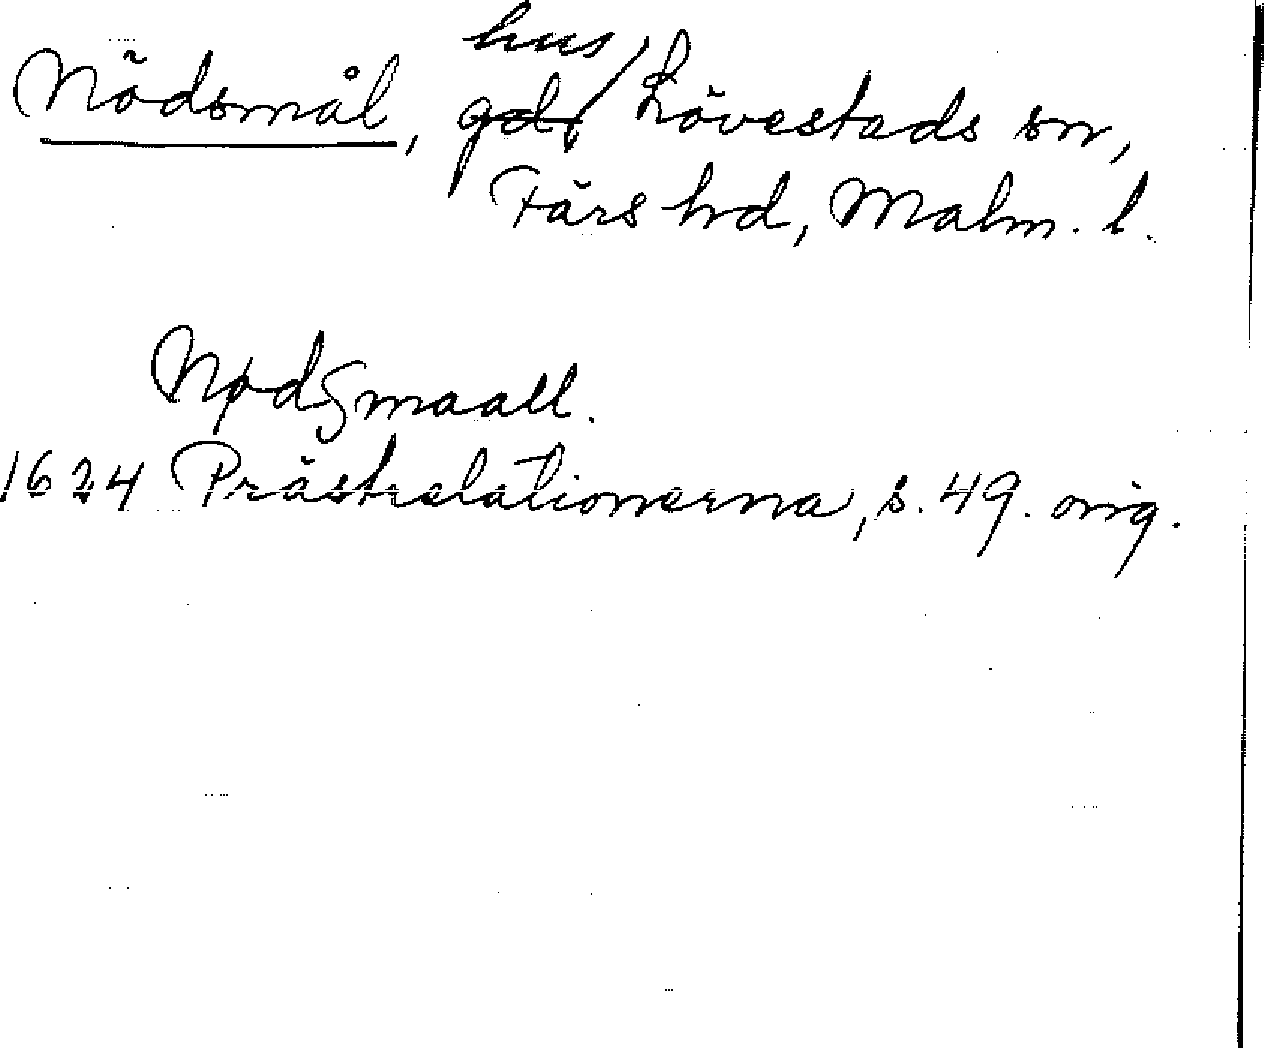 hus,
Nödsmål, gd, Lövestads sn,
Färs hd, Malm. l.
Nødsmaall.
1624 Prästrelationerna, s. 49. orig.